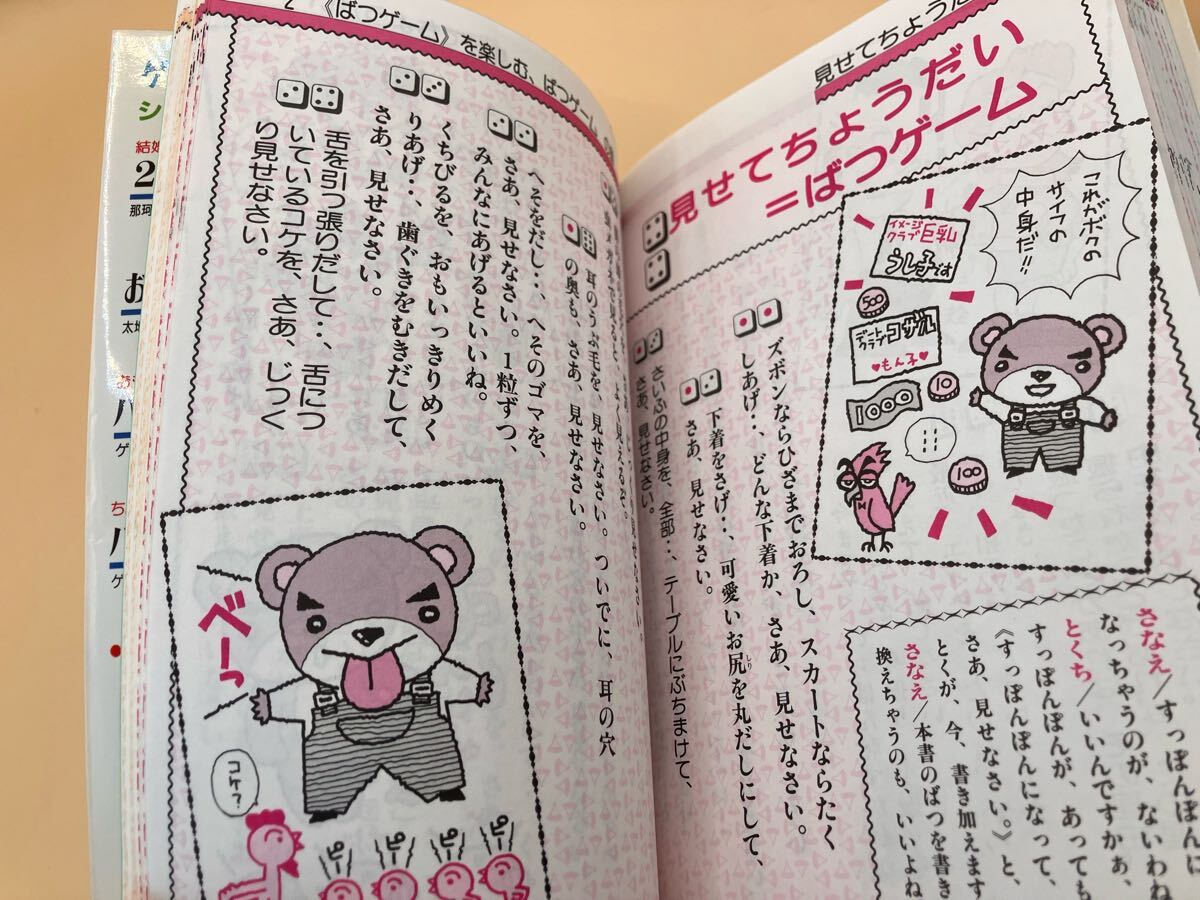 見せてちょうだい
見せてちょうだい
=ばつゲーム
これがボクの
サイフの
中身だ!!
イメージ
クラブ巨乳
うし子です
500
デート
クラブコザル
♥もん子♥
1000
10
100
ズボンならひざまでおろし、スカートならたく
しあげ・・、どんな下着か、さあ、見せなさい。
下着をさげ・・、可愛いお尻を丸だしにして、
しり
さあ、見せなさい。
さいふの中身を、全部・・、テーブルにぶちまけて、
さあ、見せなさい。
さなえ/すっぽんぽんに
なっちゃうのが、ないわね
とくち/いいんですかぁ、
すっぽんぽんが、あっても
《すっぽんぽんになって、
さあ、見せなさい。》と、
とくが、今、書き加えます
さなえ/本書のばつを書き
換えちゃうのも、いいよね
2 《ばつゲーム》を楽しむ、ばつゲーム
耳のうぶ毛を、見せなさい。ついでに、耳の穴
の奥も、さあ、見せなさい。
へそをだし・・、へそのゴマを、
さあ、見せなさい。1粒ずつ、
みんなにあげるといいね。
くちびるを、おもいっきりめく
りあげ・・、歯ぐきをむきだして、
さあ、見せなさい。
舌を引っ張りだして・・、舌につ
いているコケを、さあ、じっく
り見せなさい。
べーっ
コケ?
ピ
ピ
ピ
ピ
シ
結婚
2
那珂
お
太地
ゲ
ち
ゲ